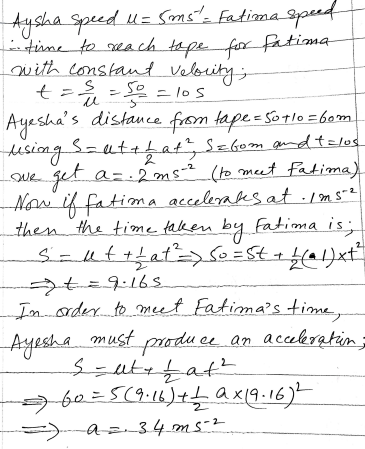 Aysha speed u = 5ms⁻¹ = Fatima speed
∴ time to reach tape for fatima
with constant velocity;
t = S/u = 50/5 = 10 s
Ayesha's distance from tape = 50+10 = 60m
using S = ut + 1/2 at², S = 60m and t = 10s
we get a = .2 ms⁻² (to meet Fatima)
Now if fatima accelerates at .1 ms⁻²
then the time taken by Fatima is;
S = ut + 1/2 at² => 50 = 5t + 1/2 (.1) x t²
=> t = 9.16 s
In order to meet Fatima's time,
Ayesha must produce an acceleration;
S = ut + 1/2 at²
=> 60 = 5(9.16) + 1/2 a x (9.16)²
=> a = .34 ms⁻²